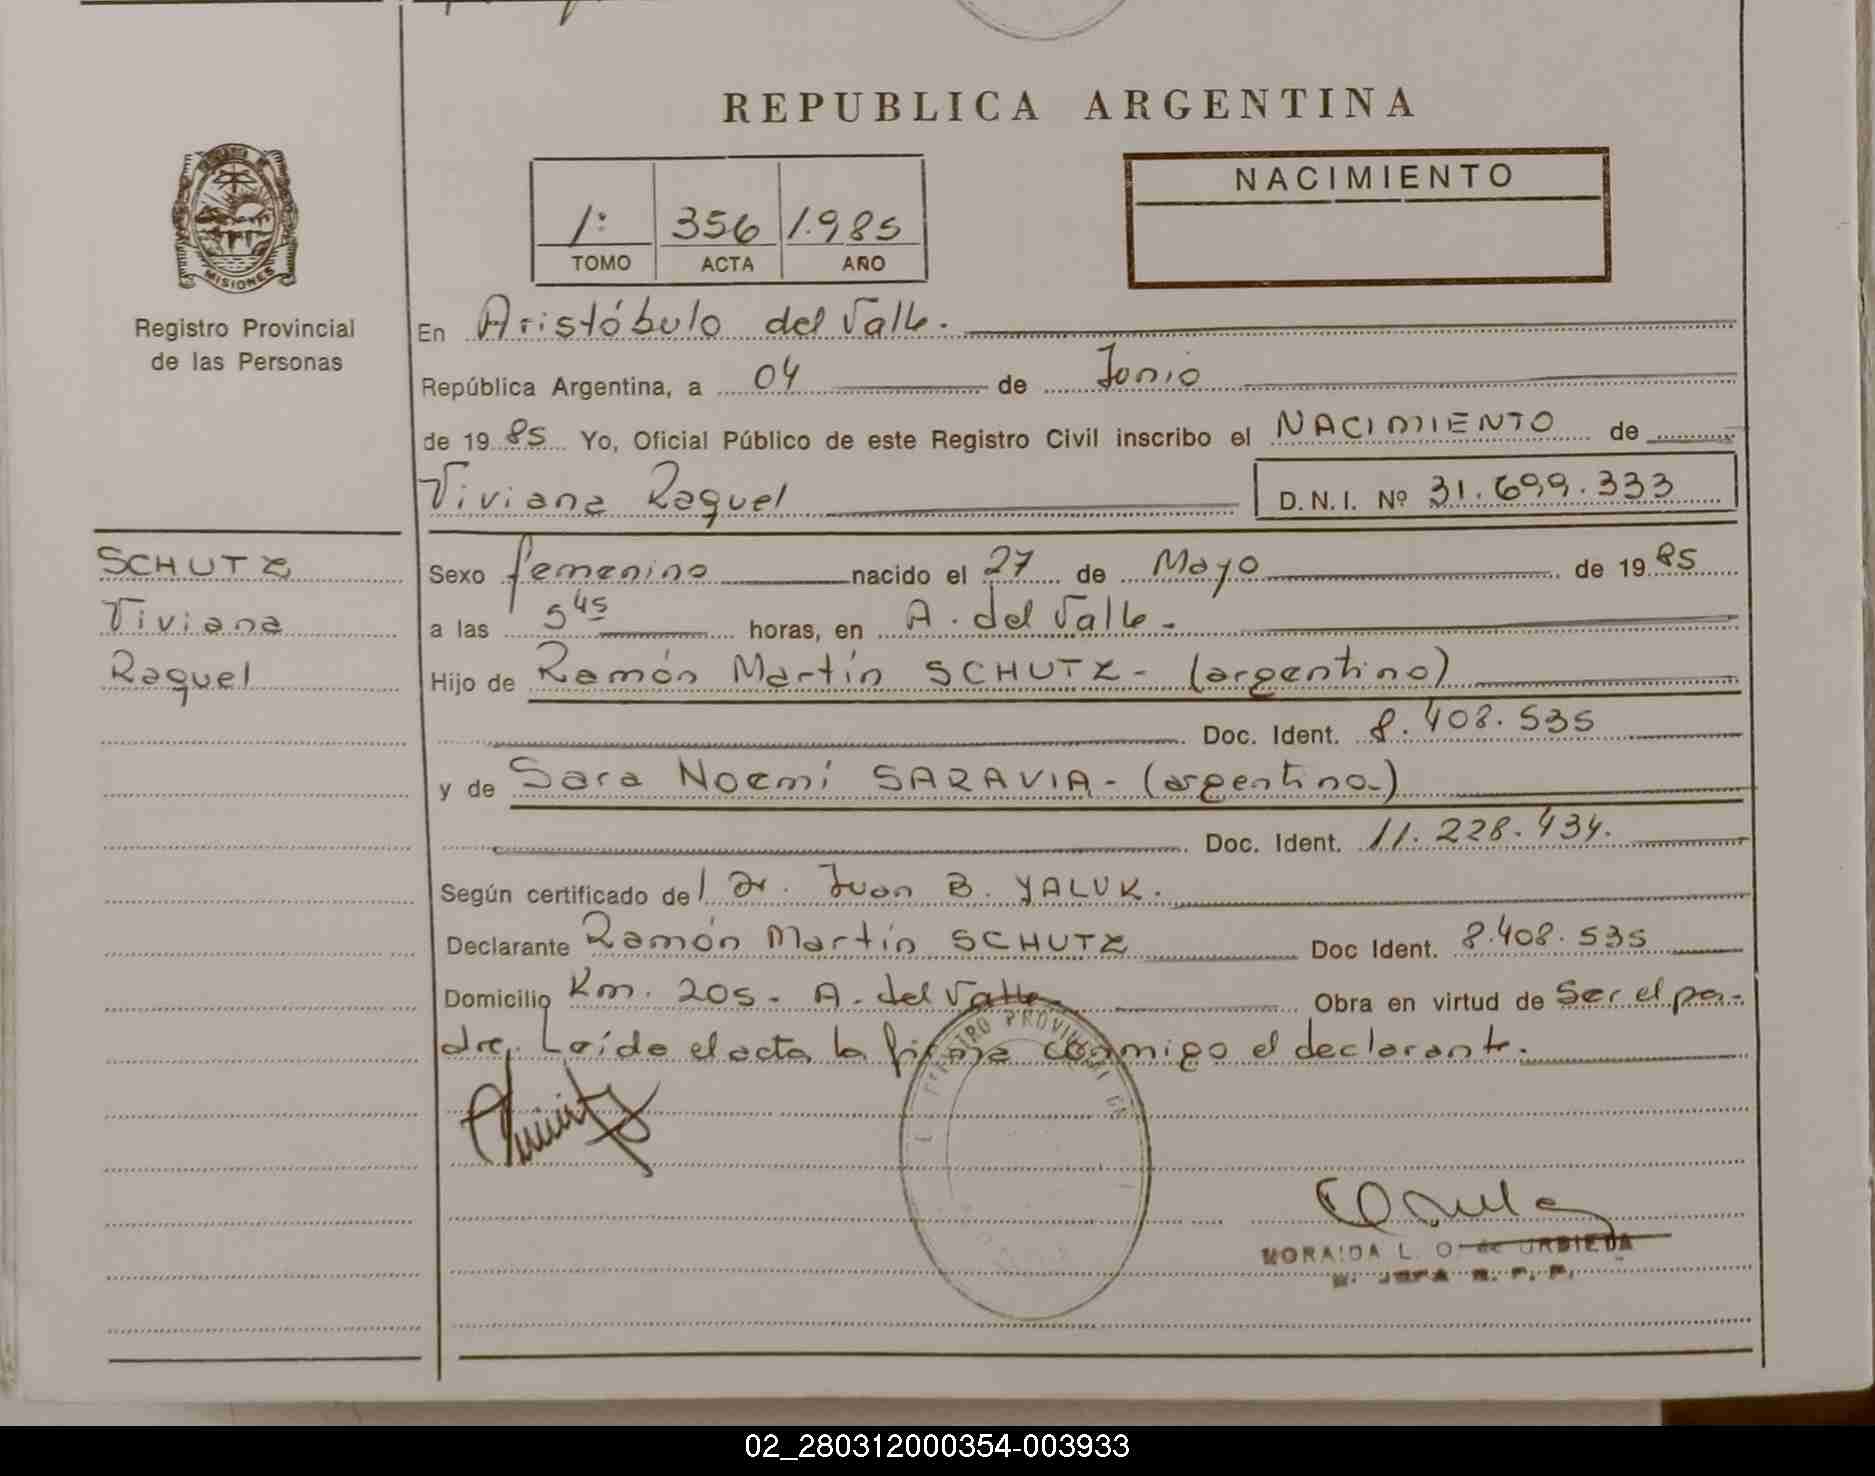 REPUBLICA ARGENTINA
NACIMIENTO
1: 356 1.985
TOMO ACTA AÑO
MISIONES
Registro Provincial
de las Personas
En Aristóbulo del Valle.
República Argentina, a 04 de Junio
de 19 85 Yo, Oficial Público de este Registro Civil inscribo el NACIMIENTO de
Viviana Raquel D.N.I. Nº 31.699.333
SCHUTZ
Viviana
Raquel
Sexo femenino nacido el 27 de Mayo de 19 85
a las 5 45 horas, en A. del Valle.
Hijo de Ramón Martín SCHUTZ - (argentino)
Doc. Ident. 8.408.535
y de Sara Noemí SARAVIA - (argentina)
Doc. Ident. 11.228.434.
Según certificado del Dr. Juan B. YALUK.
Declarante Ramón Martín SCHUTZ Doc Ident. 8.408.535
Domicilio Km. 205 - A. del Valle Obra en virtud de Ser el pa-
dre. Leída el acta la firma conmigo el declarante.
REGISTRO PROVINCIAL DE
MORAIDA L. O. de URBIETA
JEFA R. P. P.
02_280312000354-003933